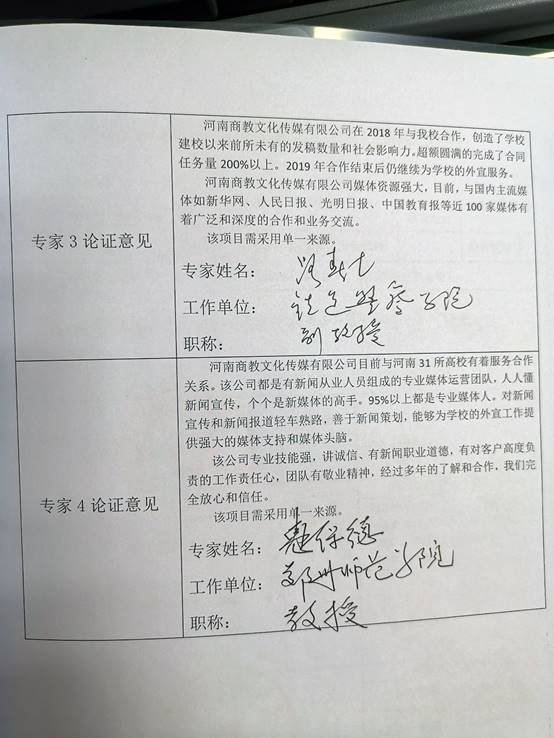 专家3论证意见
河南商教文化传媒有限公司在2018年与我校合作，创造了学校
建校以来前所未有的发稿数量和社会影响力。超额圆满的完成了合同
任务量200%以上。2019年合作结束后仍继续为学校的外宣服务。
河南商教文化传媒有限公司媒体资源强大，目前，与国内主流媒
体如新华网、人民日报、光明日报、中国教育报等近100家媒体有
着广泛和深度的合作和业务交流。
该项目需采用单一来源。
专家姓名：
工作单位：铁道警察学院
职称：副教授
专家4论证意见
河南商教文化传媒有限公司目前与河南31所高校有着服务合作
关系。该公司都是有新闻从业人员组成的专业媒体运营团队，人人懂
新闻宣传，个个是新媒体的高手。95%以上都是专业媒体人。对新闻
宣传和新闻报道轻车熟路，善于新闻策划，能够为学校的外宣工作提
供强大的媒体支持和媒体头脑。
该公司专业技能强，讲诚信、有新闻职业道德，有对客户高度负
责的工作责任心，团队有敬业精神，经过多年的了解和合作，我们完
全放心和信任。
该项目需采用单一来源。
专家姓名：
工作单位：郑州师范学院
职称：教授